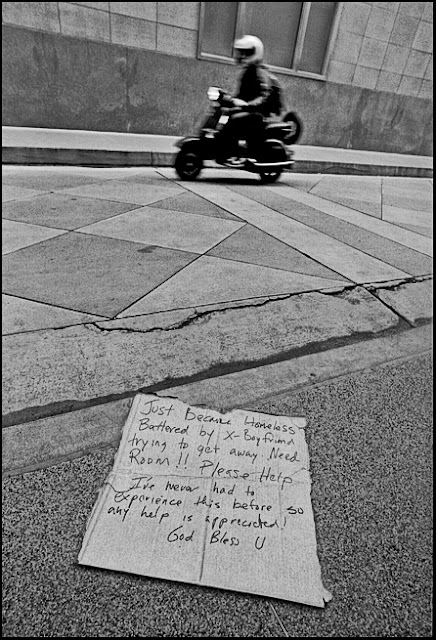 Just Became Homeless
Battered by X-Boyfriend
trying to get away Need
Room!! Please Help
I've never had to
experience this before so
any help is appreciated!
God Bless U